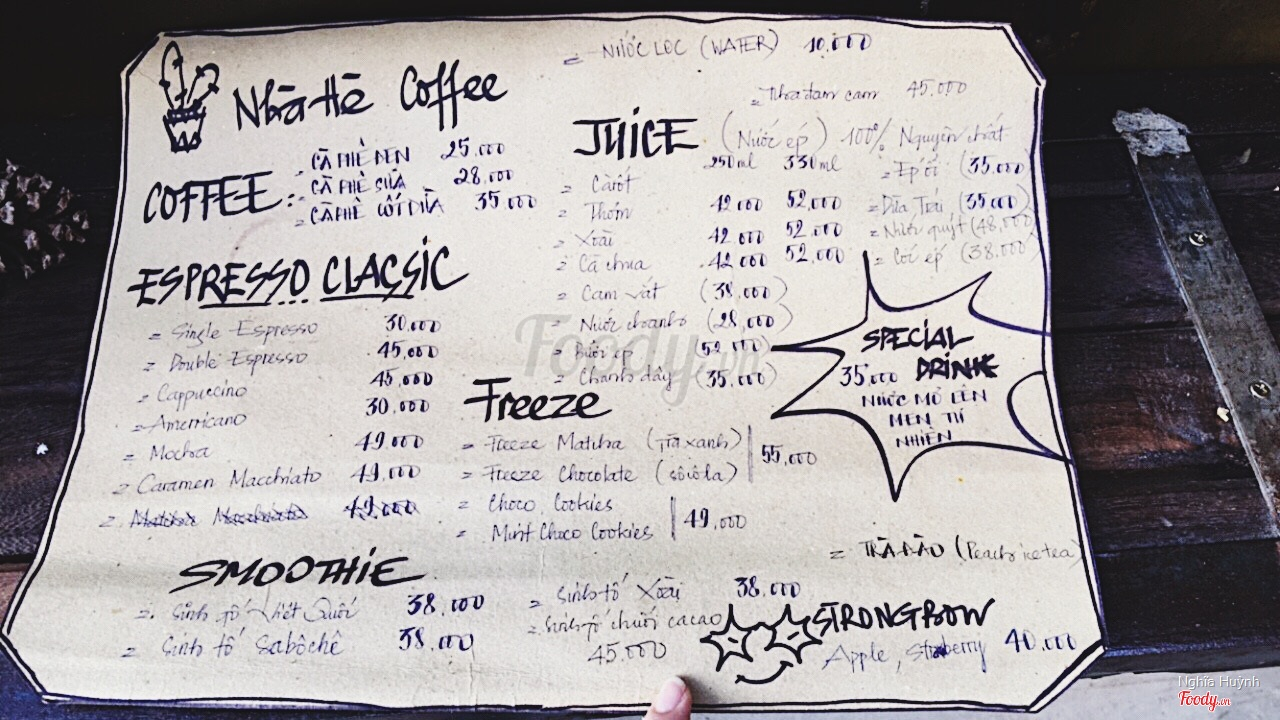 Nhà Hê Coffee
COFFEE:
- CÀ PHÊ ĐEN 25.000
- CÀ PHÊ SỮA 28.000
= CÀ PHÊ CỐT DỪA 35.000
ESPRESSO CLASSIC
= Single Espresso 30.000
= Double Espresso 45.000
= Cappuccino 45.000
= Americano 30.000
= Mocha 49.000
= Caramen Macchiato 49.000
SMOOTHIE
= Sinh tố Việt Quốc 38.000
= Sinh tố Sabôchê 38.000
= Sinh tố Xoài 38.000
= Sinh tố chuối cacao
45.000
= NƯỚC LỌC (WATER) 10.000
= Nha đam cam 45.000
JUICE (Nước ép) 100% Nguyên chất
250ml 330ml
= Càrốt 42.000 52.000
= Thơm 42.000 52.000
= Xoài 42.000 52.000
= Cà chua
= Cam vắt (38.000)
= Nước chanh (28.000)
= Bưởi ép (52.000)
= Chanh dây (35.000)
= Ép ổi (35.000)
= Dừa Trái (35.000)
= Nước quýt (48.000)
= Cóc ép (38.000)
SPECIAL
DRINK
35.000
NƯỚC MƠ LÊN
MEN TỰ
NHIÊN
Freeze
= Freeze Matcha (Trà xanh)
= Freeze Chocolate (sôcôla)
55.000
= Choco Cookies
= Mint Choco Cookies
49.000
= TRÀ ĐÀO (Peach ice tea)
STRONGBOW
Apple, Strawberry 40.000
Foody.vn
Nghĩa Huỳnh
Foody.vn